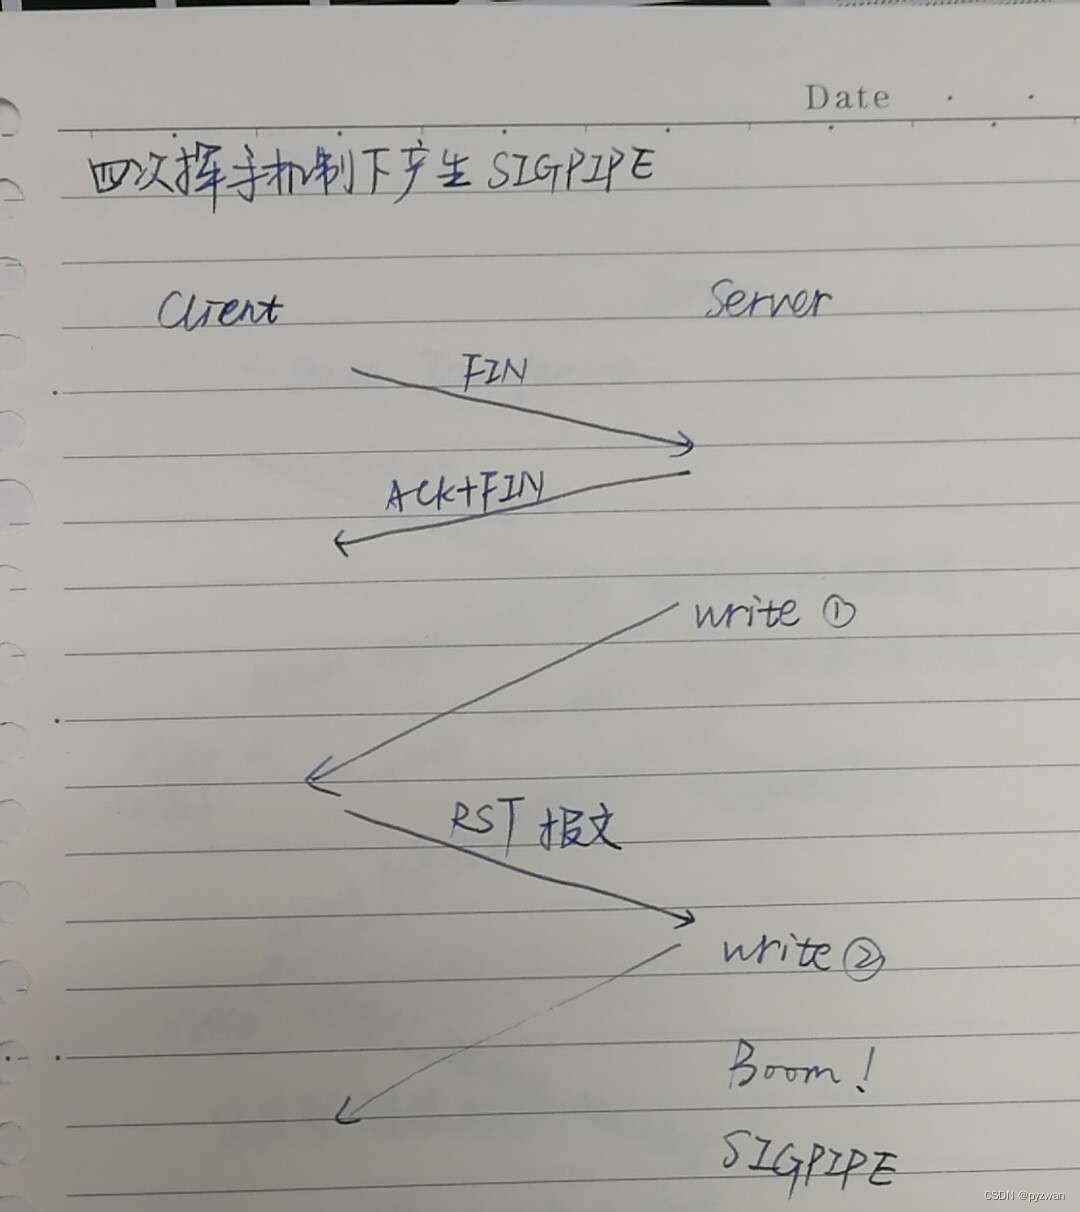 Date
四次挥手机制下产生 SIGPIPE
Client Server
FIN
ACK+FIN
write ①
RST 报文
write ②
Boom!
SIGPIPE
CSDN @pyzwan